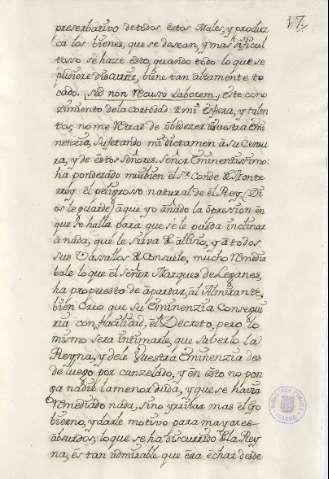 17.
preserbativo de todos estos Males, y produz
ca los bienes, que se desean, y mas dificul
toso se haze esto, quando todo lo que se
pudiere discurrir, biene tan altamente to
cado. Sed non recuso laborem, este cono
zimiento de la cortedad de mi Esfera, y talen
tos, no me retrae de obedezer a Vuestra Emi
nenzia, sujetando mi dictamen a su Censu
ra, y de estos Señores. Señor Eminentissimo:
ha ponderado mui bien el Sr. Conde de Monte
rrey el peligroso natural de el Rey (Di
os le guarde) a que yo añado la opresion en
que se halla para que se le pueda inclinar
a nada, que le sirva de alibio, y a todos
sus Vasallos de Consuelo, mucho remedia
ba lo que el Señor Marques de Leganes,
ha propuesto de apartar, al Almirante,
bien creo que su Eminenzia Consegui
ria con facilidad, el Decreto, pero lo
mismo sera intimarle, que saberlo la
Reyna, y dele Vuestra Eminenzia des
de luego por canzelado, y en esto no pon
ga nadie la menor duda, y que se havra
remediado nada, sino irritar mas el go
bierno, y darle motivo para mayores
absurdos; lo que se ha discurrido de la Rey
na, es tan admirable que era echar desde